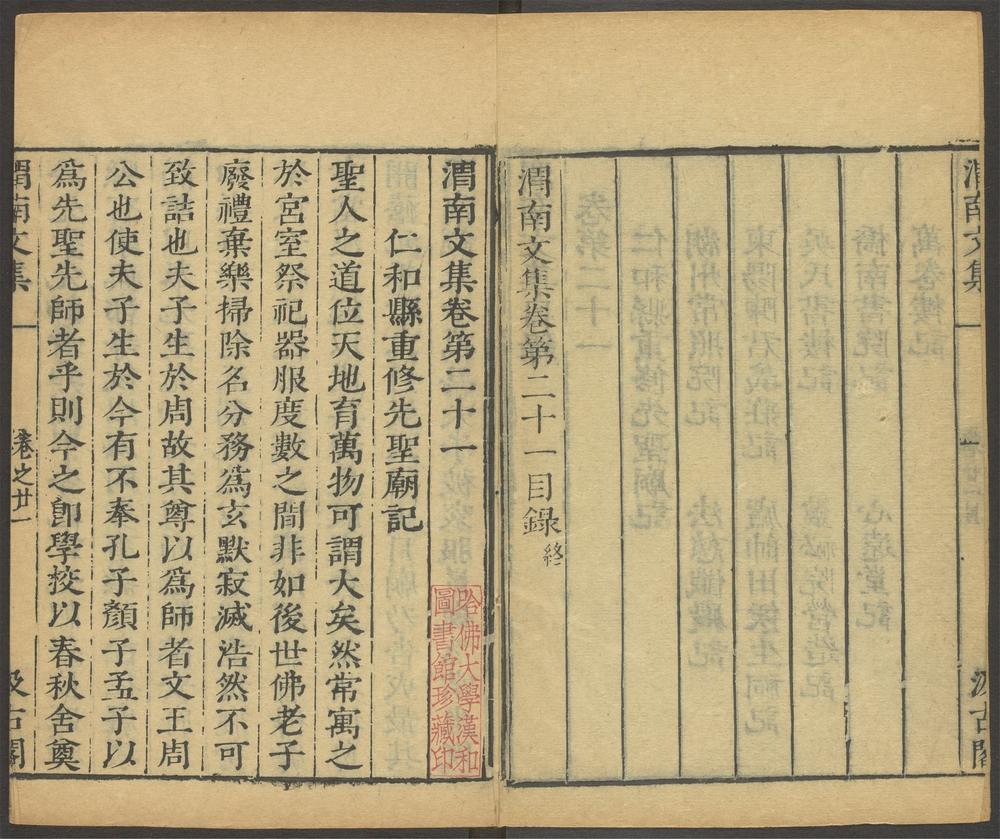 渭南文集
汲古閣
渭南文集卷第二十一目錄終
渭南文集卷第二十一
仁和縣重修先聖廟記
聖人之道位天地育萬物可謂大矣然常寓之
於宮室祭祀器服度數之間非如後世佛老子
廢禮棄樂掃除名分務爲玄默寂滅浩然不可
致詰也夫子生於周故其尊以爲師者文王周
公也使夫子生於今有不奉孔子顏子孟子以
爲先聖先師者乎則今之卽學挍以春秋舍奠
渭南文集
卷之廿一
汲古閣
哈佛大學漢和
圖書館珍藏印